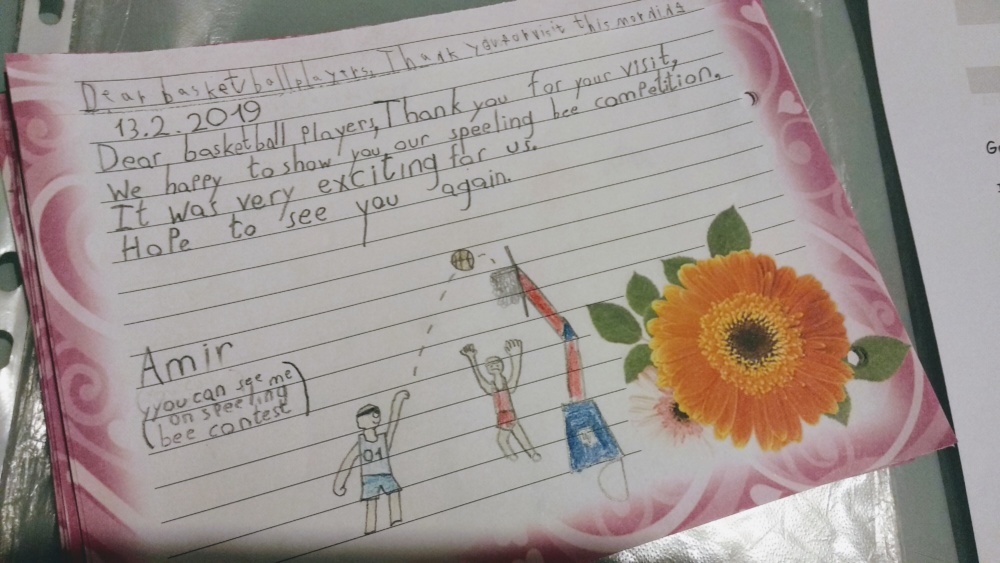 Dear basketball players, Thank you for visit this morning
13.2.2019
Dear basketball players, Thank you for your visit,
We happy to show you our speeling bee competition.
It was very exciting for us.
Hope to see you again.
Amir
(you can see me
on speeling
bee contest)
01